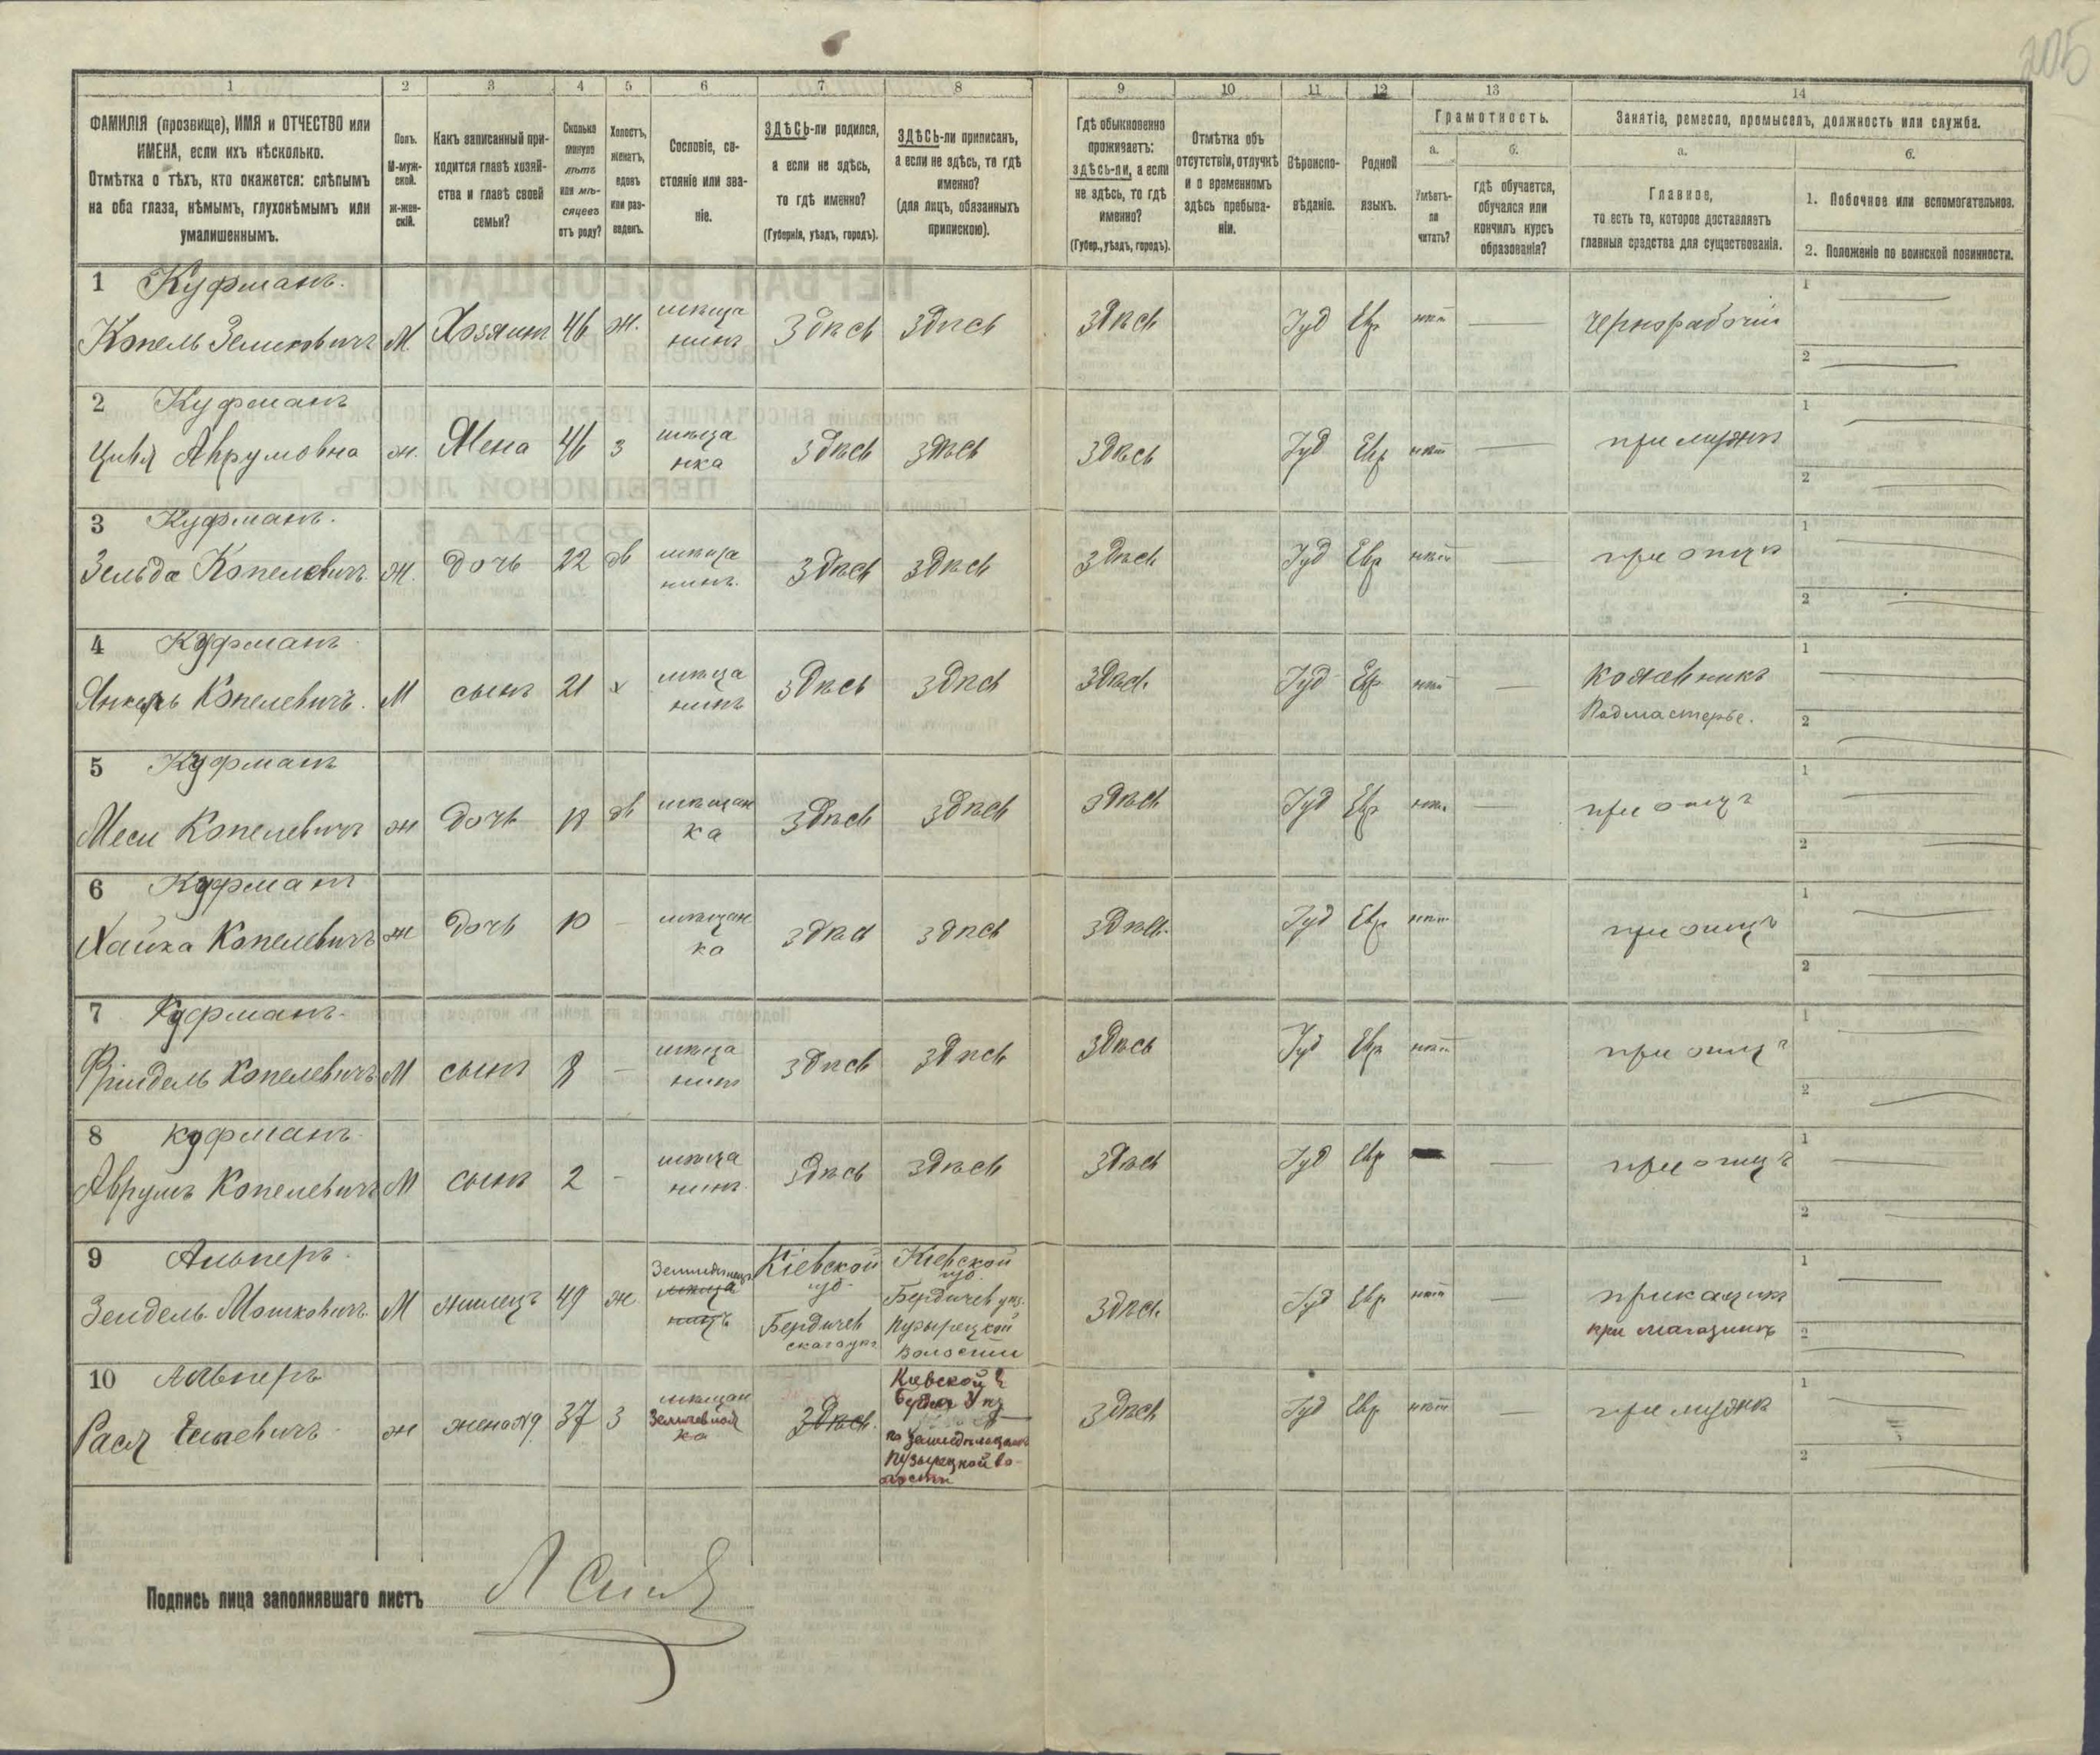 205
1 2 3 4 5 6 7 8 9 10 11 12 13 14
ФАМИЛІЯ (прозвище), ИМЯ и ОТЧЕСТВО или
ИМЕНА, если ихъ нѣсколько.
Отмѣтка о тѣхъ, кто окажется: слѣпымъ
на оба глаза, нѣмымъ, глухонѣмымъ или
умалишеннымъ.
Полъ.
М-муж-
ской.
Ж-жен-
скій.
Какъ записанный при-
ходится главѣ хозяй-
ства и главѣ своей
семьи?
Сколько
минуло
лѣтъ
или мѣ-
сяцевъ
отъ роду?
Холостъ,
женатъ,
вдовъ
или раз-
веденъ.
Сословіе, со-
стояніе или зва-
ніе.
ЗДѢСЬ-ли родился,
а если не здѣсь,
то гдѣ именно?
(Губернія, уѣздъ, городъ).
ЗДѢСЬ-ли приписанъ,
а если не здѣсь, то гдѣ
именно?
(для лицъ, обязанныхъ
припискою).
Гдѣ обыкновенно
проживаетъ:
здѣсь-ли, а если
не здѣсь, то гдѣ
именно?
(Губер., уѣздъ, городъ).
Отмѣтка объ
отсутствіи, отлучкѣ
и о временномъ
здѣсь пребыва-
ніи.
Вѣроиспо-
вѣданіе.
Родной
языкъ.
Грамотность.
а.
Умѣетъ-
ли
читать?
б.
гдѣ обучается,
обучался или
кончилъ курсъ
образованія?
Занятіе, ремесло, промыселъ, должность или служба.
а.
Главное,
то есть то, которое доставляетъ
главныя средства для существованія.
б.
1. Побочное или вспомогательное.
2. Положеніе по воинской повинности.
1 Куфманъ.
Копель Зеликовичъ М. Хозяинъ 46 ж. мѣща
нинъ здѣсь здѣсь здѣсь Іуд Евр нѣт — чернорабочій
1
2
2 Куфманъ
Цивя Аврумовна ж. Жена 46 з мѣща
нка здѣсь здѣсь здѣсь Іуд Евр нѣт — при мужѣ
1
2
3 Куфманъ.
Зельда Копелевичъ ж. дочь 22 дѣ мѣща
нинъ. здѣсь здѣсь здѣсь Іуд Евр нѣт — при отцѣ
1
2
4 Куфманъ
Янкель Копелевичъ. М сынъ 21 х мѣща
нинъ здѣсь здѣсь здѣсь Іуд Евр нѣт — Кожевникъ
Подмастерье.
1
2
5 Куфманъ
Меси Копелевичъ ж дочь дѣ мѣщан
ка здѣсь здѣсь здѣсь Іуд Евр нѣт — при отцѣ
1
2
6 Куфманъ
Хайка Копелевичъ ж дочь 10 - мѣщан
ка здѣсь здѣсь здѣсь Іуд Евр нѣт при отцѣ
1
2
7 Куфманъ.
Копелевичъ М сынъ 8 - мѣща
нинъ здѣсь здѣсь здѣсь Іуд Евр нѣт при отцѣ
1
2
8 Куфманъ.
Аврумъ Копелевичъ М сынъ 2 - мѣща
нинъ. здѣсь здѣсь здѣсь Іуд Евр — при отцѣ
1
2
9 Альперъ.
Зейдель Мошковичъ. М жилецъ 49 ж. Земледѣлецъ
мѣща
нинъ
Кіевской
губ.
Бердичев
скаго уѣз.
Кіевской
губ.
Бердичев уѣз.
Пузырецкой
волости
здѣсь Іуд Евр нѣт прикащикъ
при магазинѣ
1
2
10 Альперъ
Рася ж жена №9 37 з мѣщан
ка
здѣсь.
Кіевской г.
Пузырецкой во-
лости
здѣсь Іуд Евр нѣт — при мужѣ
1
2
Подпись лица заполнявшаго листъ